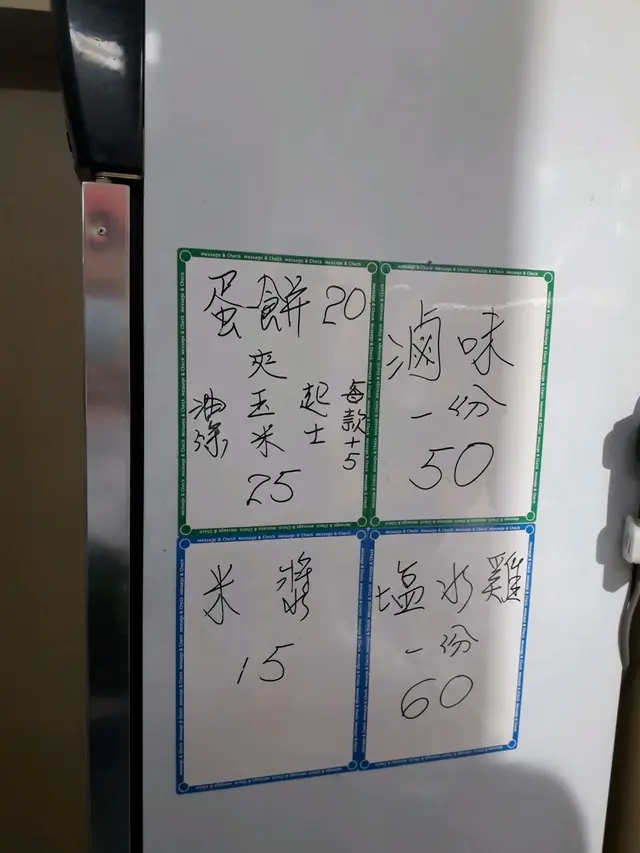 蛋餅 20
夾
油條
玉米
起士
每款+5
25
滷味
一份
50
米漿
15
塩水雞
一份
60
Message & Check